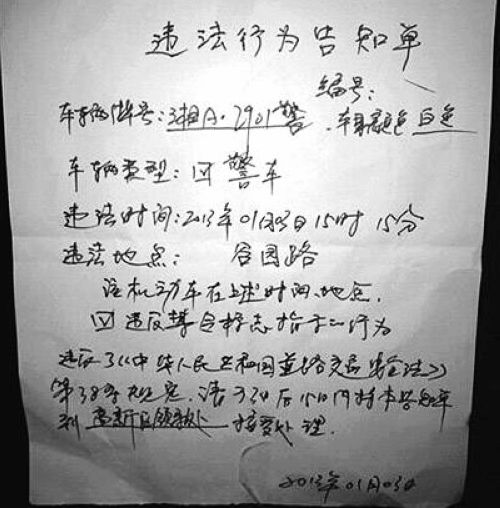 违法行为告知单
编号:
车辆牌号:湘A·2901警 车身颜色 白色
车辆类型: 警车
违法时间:2013年01月03日15时15分
违法地点: 谷园路
该机动车在上述时间、地点,
违反禁令标志指示的行为
违反了《中华人民共和国道路交通安全法》
第38条规定,请于 后 日内持本告知单
到 高新区 处 接受处理.
2013年01月03日